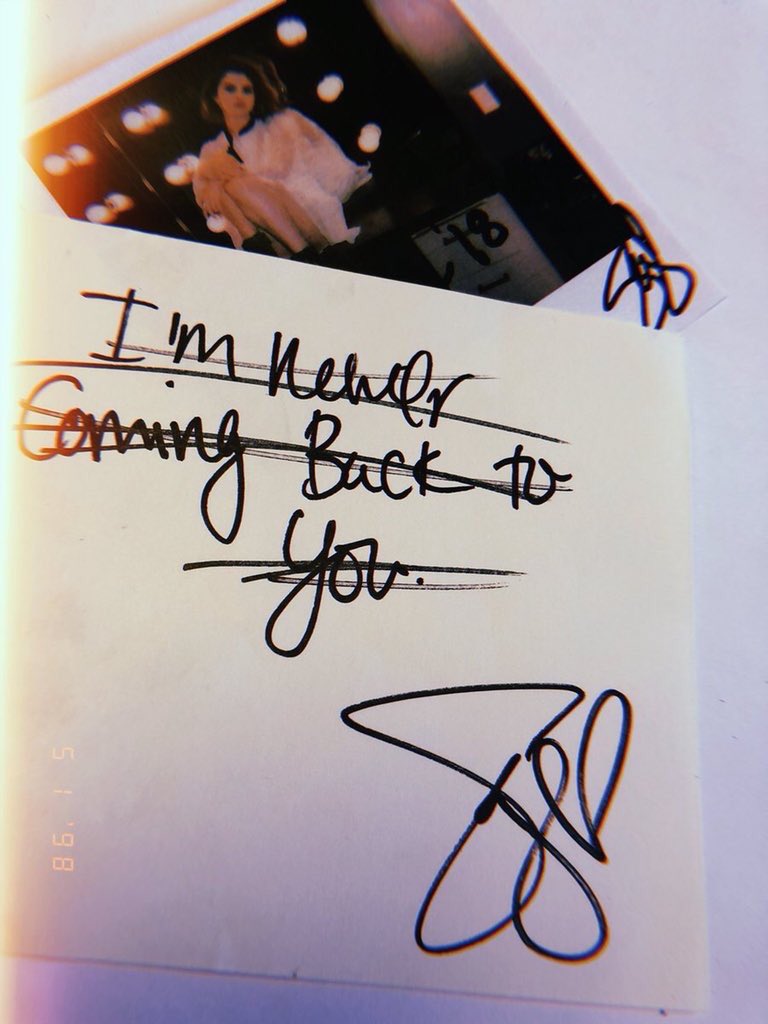 '78
I'm Never
Coming Back to
You.
5 1 '98